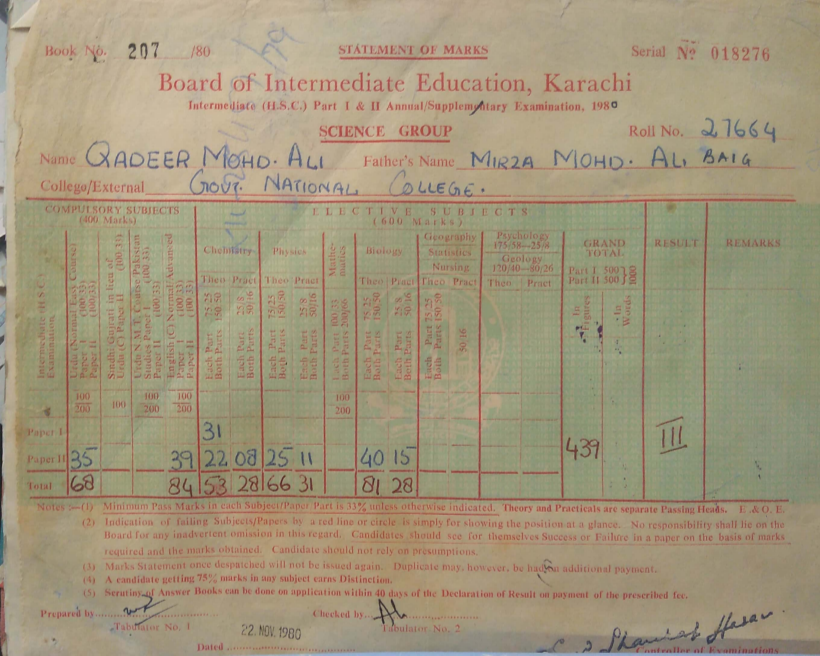 Book No. 207 /80 STATEMENT OF MARKS Serial Nº 018276
Board of Intermediate Education, Karachi
Intermediate (H.S.C.) Part I & II Annual/Supplementary Examination, 1980
SCIENCE GROUP
Roll No. 27664
Name QADEER MOHD. ALI Father's Name MIRZA MOHD. ALI BAIG
College/External GOVT. NATIONAL COLLEGE.
COMPULSORY SUBJECTS ELECTIVE SUBJECTS
(400 Marks) (600 Marks)
Intermediate H.S.C. Examination.
Urdu (Normal Easy Course) Paper I (100/33) Paper II (100/33)
Sindhi/Gujrati in lieu of Urdu Paper II (100/33)
English (C) Normal/Advanced Paper I (100/33) Paper II (100/33)
Chemistry Physics Mathematics Biology
Geography
Statistics
Nursing
Psychology
175/58—25/8
Geology
120/40—80/26
GRAND TOTAL
Part I 500
Part II 500
1000
RESULT REMARKS
Theo Pract Theo Pract Theo Pract Theo Pract Theo Pract
Each Part 75/25 Both Parts 150/50
Each Part 25/8 Both Parts 50/16
Each Part 75/25 Both Parts 150/50
Each Part 25/8 Both Parts 50/16
Each Part 100/33 Both Parts 200/66
Each Part 75/25 Both Parts 150/50
Each Part 25/8 Both Parts 50/16
Each Part 75/25 Both Parts 150/50
50/16
In Figures In Words
100 100 100 100
200 100 200 200 200
Paper I 31
Paper II 35 39 22 08 25 11 40 15 439 III
Total 68 84 53 28 66 31 81 28
Notes :—(1) Minimum Pass Marks in each Subject/Paper Part is 33% unless otherwise indicated. Theory and Practicals are separate Passing Heads. E. & O. E.
(2) Indication of failing Subjects/Papers by a red line or circle is simply for showing the position at a glance. No responsibility shall lie on the
Board for any inadvertent omission in this regard. Candidates should see for themselves Success or Failure in a paper on the basis of marks
required and the marks obtained. Candidate should not rely on presumptions.
(3) Marks Statement once despatched will not be issued again. Duplicate may, however, be had on additional payment.
(4) A candidate getting 75% marks in any subject earns Distinction.
(5) Scrutiny of Answer Books can be done on application within 40 days of the Declaration of Result on payment of the prescribed fee.
Prepared by Checked by
Tabulator No. 1 22. NOV. 1980 Tabulator No. 2
Dated Controller of Examinations